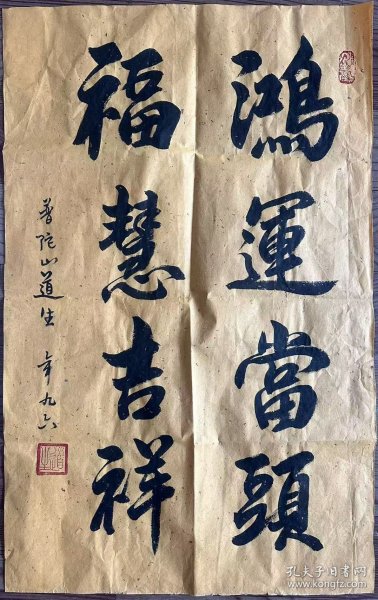 鴻運當頭
福慧吉祥
普陀山道生 年九六
孔夫子旧书网
www.kongfz.com